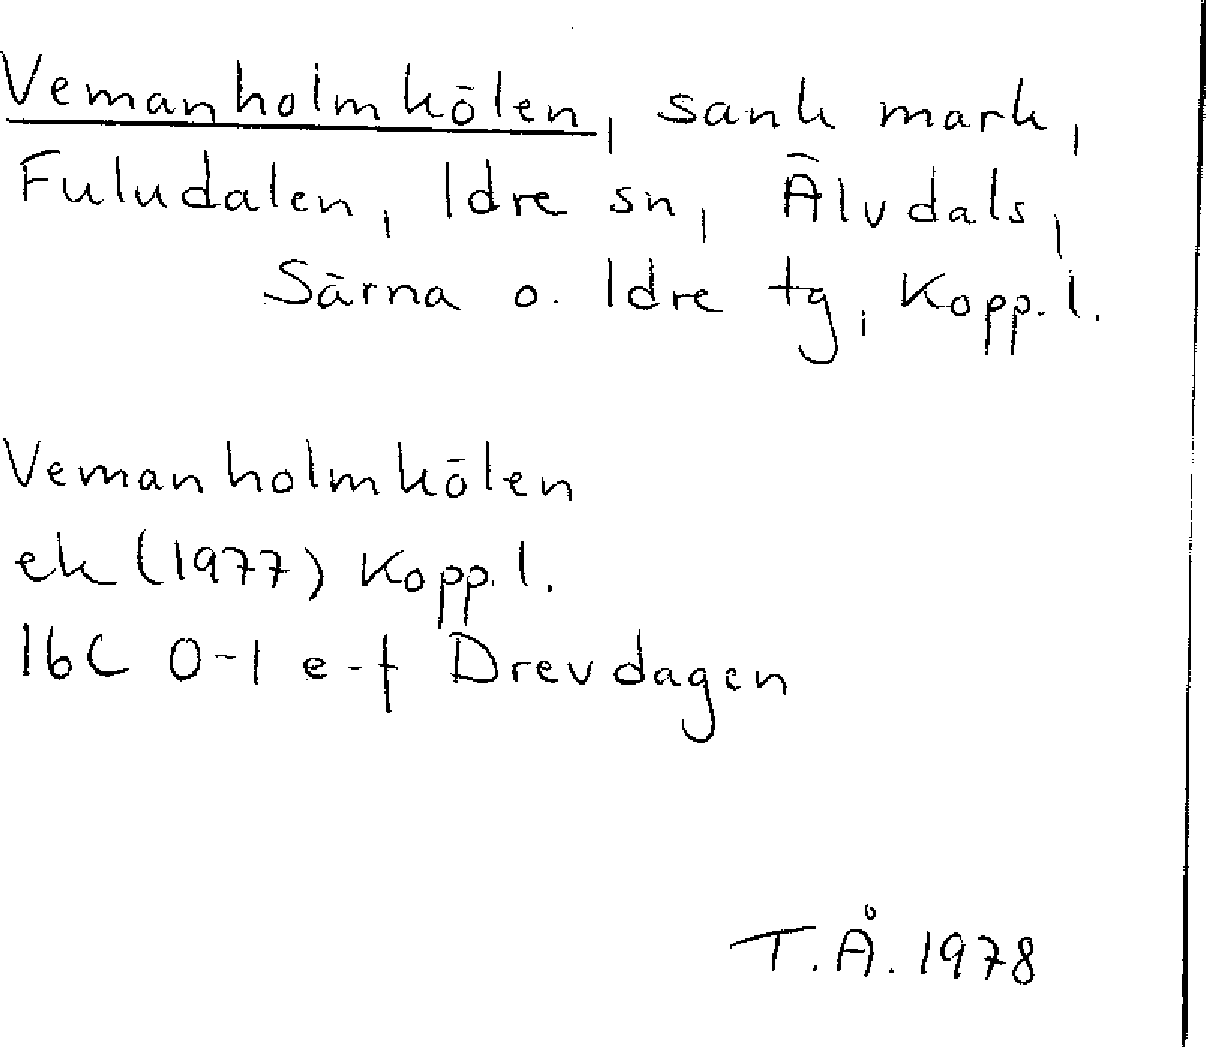 Vemanholmkölen, sank mark,
Fuludalen, Idre sn, Älvdals,
Särna o. Idre tg, Kopp. l.
Vemanholmkölen
ek (1977) Kopp. l.
16C 0-1 e-f Drevdagen
T.Å. 1978